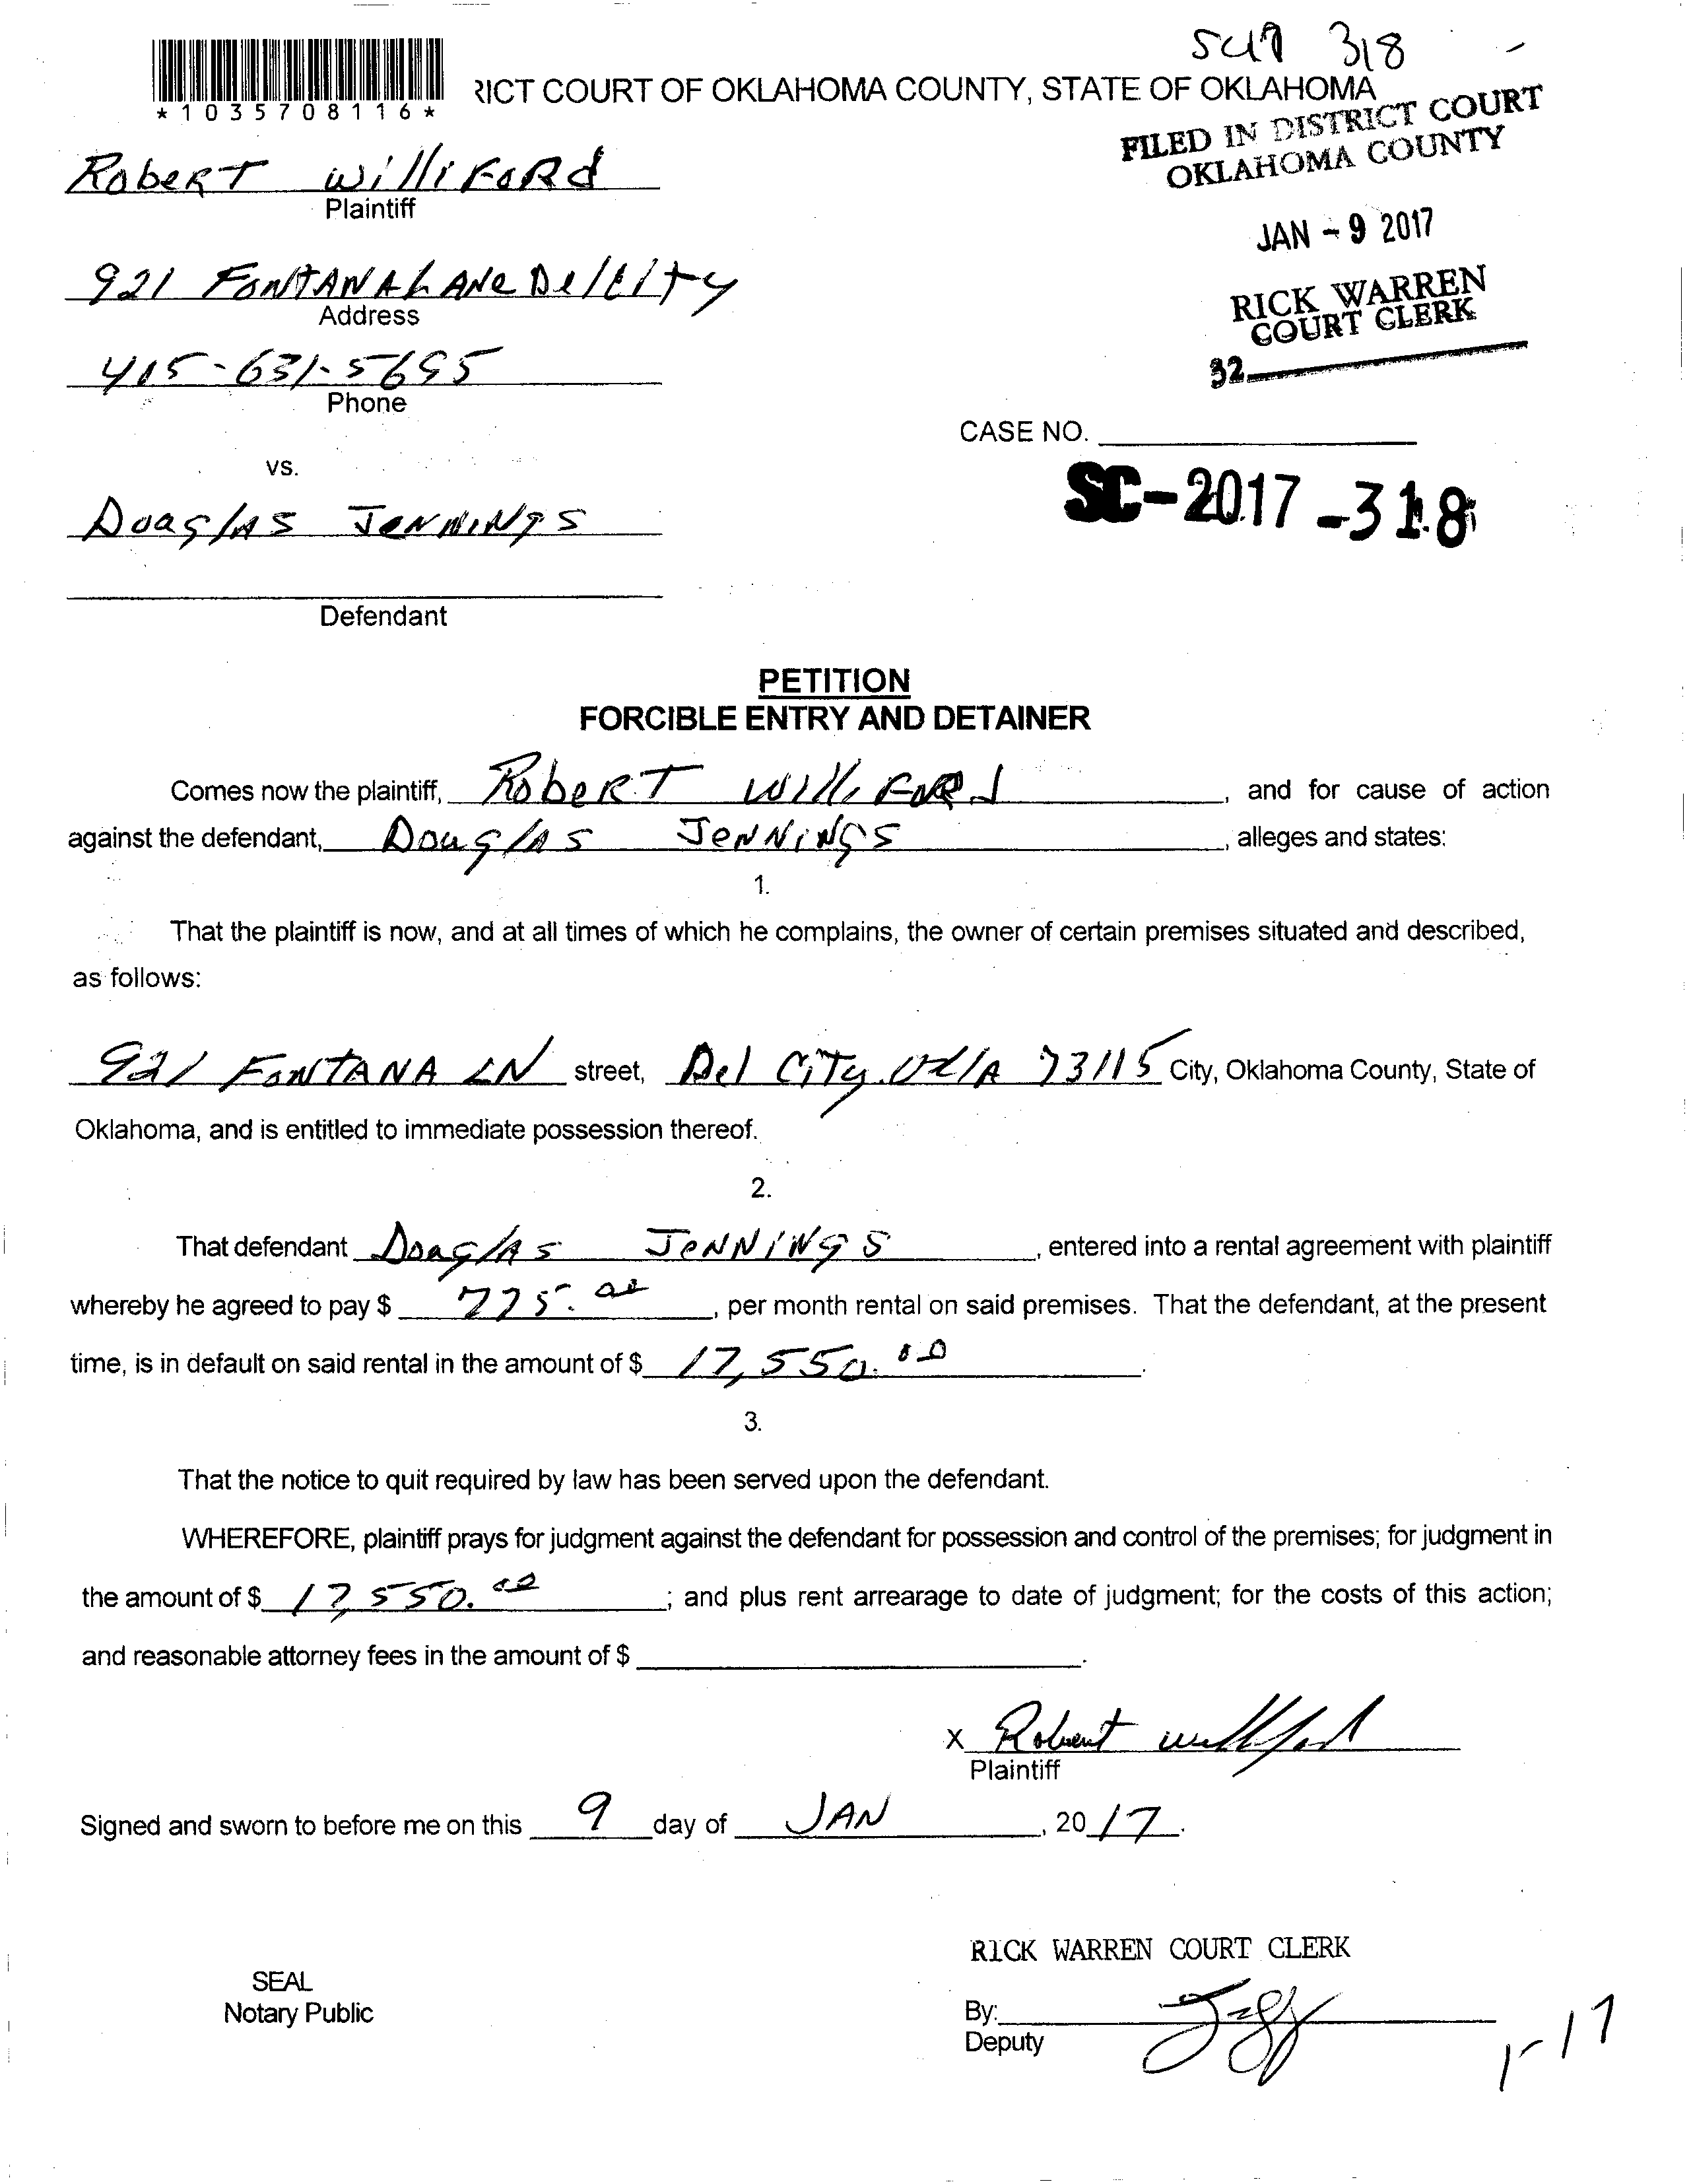 SC17 318
*1035708116*
RICT COURT OF OKLAHOMA COUNTY, STATE OF OKLAHOMA
FILED IN DISTRICT COURT
OKLAHOMA COUNTY
RobeRT WilliFoRd
Plaintiff
JAN - 9 2017
921 FoNTANA LANe Del CITy
Address
RICK WARREN
COURT CLERK
32
405-631-5695
Phone
CASE NO.
SC-2017-318
vs.
Douglas JeNNiNgS
Defendant
PETITION
FORCIBLE ENTRY AND DETAINER
Comes now the plaintiff, RobeRT WilliFoRd, and for cause of action
against the defendant, DouglAS JeNNiNgS, alleges and states:
1.
That the plaintiff is now, and at all times of which he complains, the owner of certain premises situated and described,
as follows:
921 FoNTANA LN street, Del CiTy. OklA 73115 City, Oklahoma County, State of
Oklahoma, and is entitled to immediate possession thereof.
2.
That defendant DouglAS JeNNiNgS, entered into a rental agreement with plaintiff
whereby he agreed to pay $ 775.00, per month rental on said premises. That the defendant, at the present
time, is in default on said rental in the amount of $ 17,550.00.
3.
That the notice to quit required by law has been served upon the defendant.
WHEREFORE, plaintiff prays for judgment against the defendant for possession and control of the premises; for judgment in
the amount of $ 17,550.00; and plus rent arrearage to date of judgment; for the costs of this action;
and reasonable attorney fees in the amount of $ .
X Robert Williford
Plaintiff
Signed and sworn to before me on this 9 day of JAN, 20 17.
RICK WARREN COURT CLERK
SEAL
Notary Public
By:
Deputy
1-17